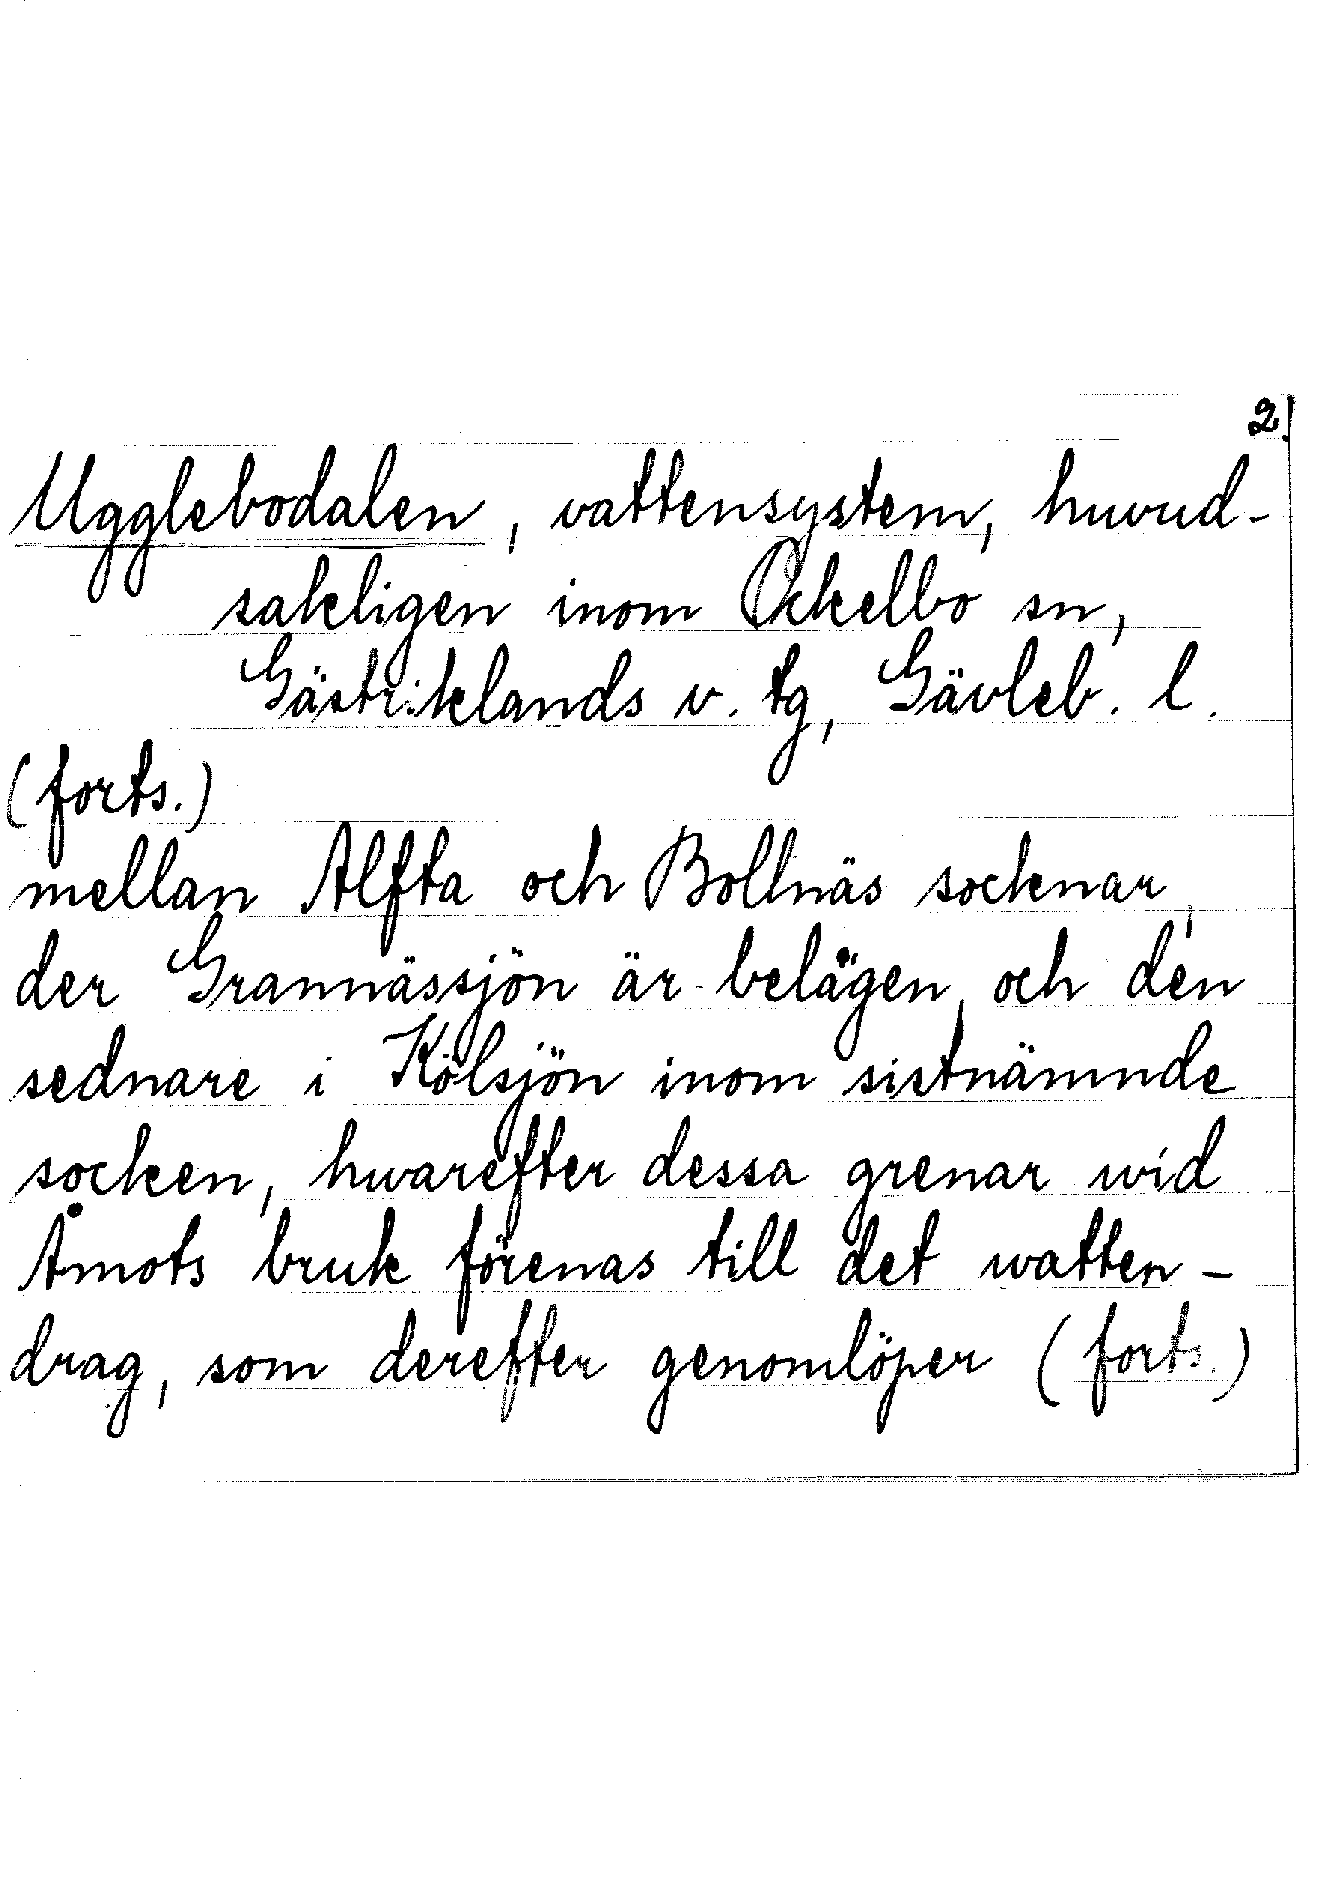 2.
Ugglebodalen, vattensystem, huvud-
sakligen inom Ockelbo sn,
Gästriklands v. tg, Gävleb. l.
(forts.)
mellan Alfta och Bollnäs socknar,
der Grannässjön är belägen, och den
sednare i Kölsjön inom sistnämnde
socken, hwarefter dessa grenar wid
Åmots bruk förenas till det watten-
drag, som derefter genomlöper (forts.)